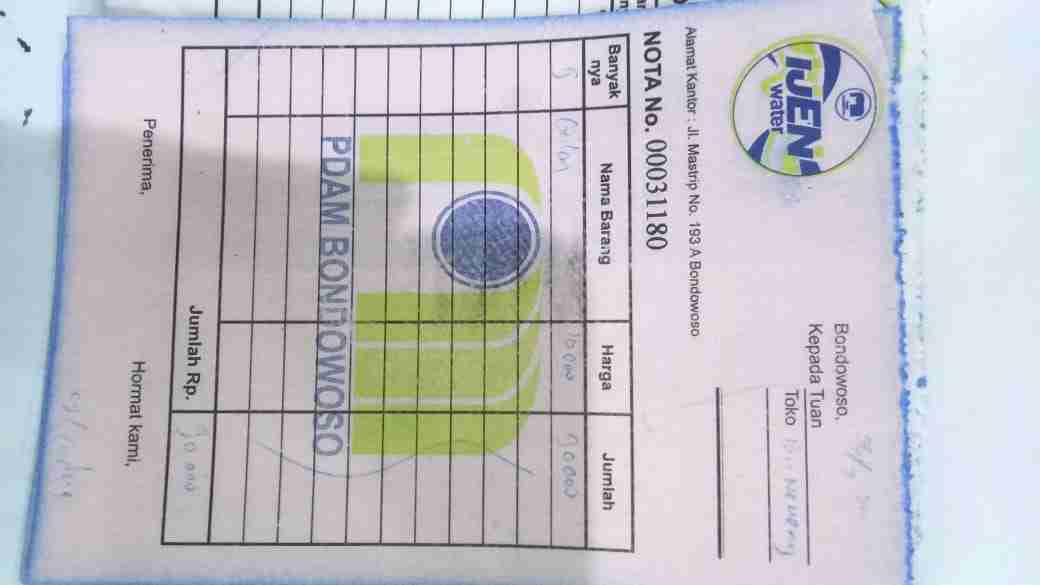 IJEN
water
Alamat Kantor : Jl. Mastrip No. 193 A Bondowoso
Bondowoso,
Kepada Tuan
Toko
NOTA No. 00031180
Banyak nya Nama Barang Harga Jumlah
Galon 10000
PDAM BONDOWOSO
Jumlah Rp. 30 000
Penerima, Hormat kami,